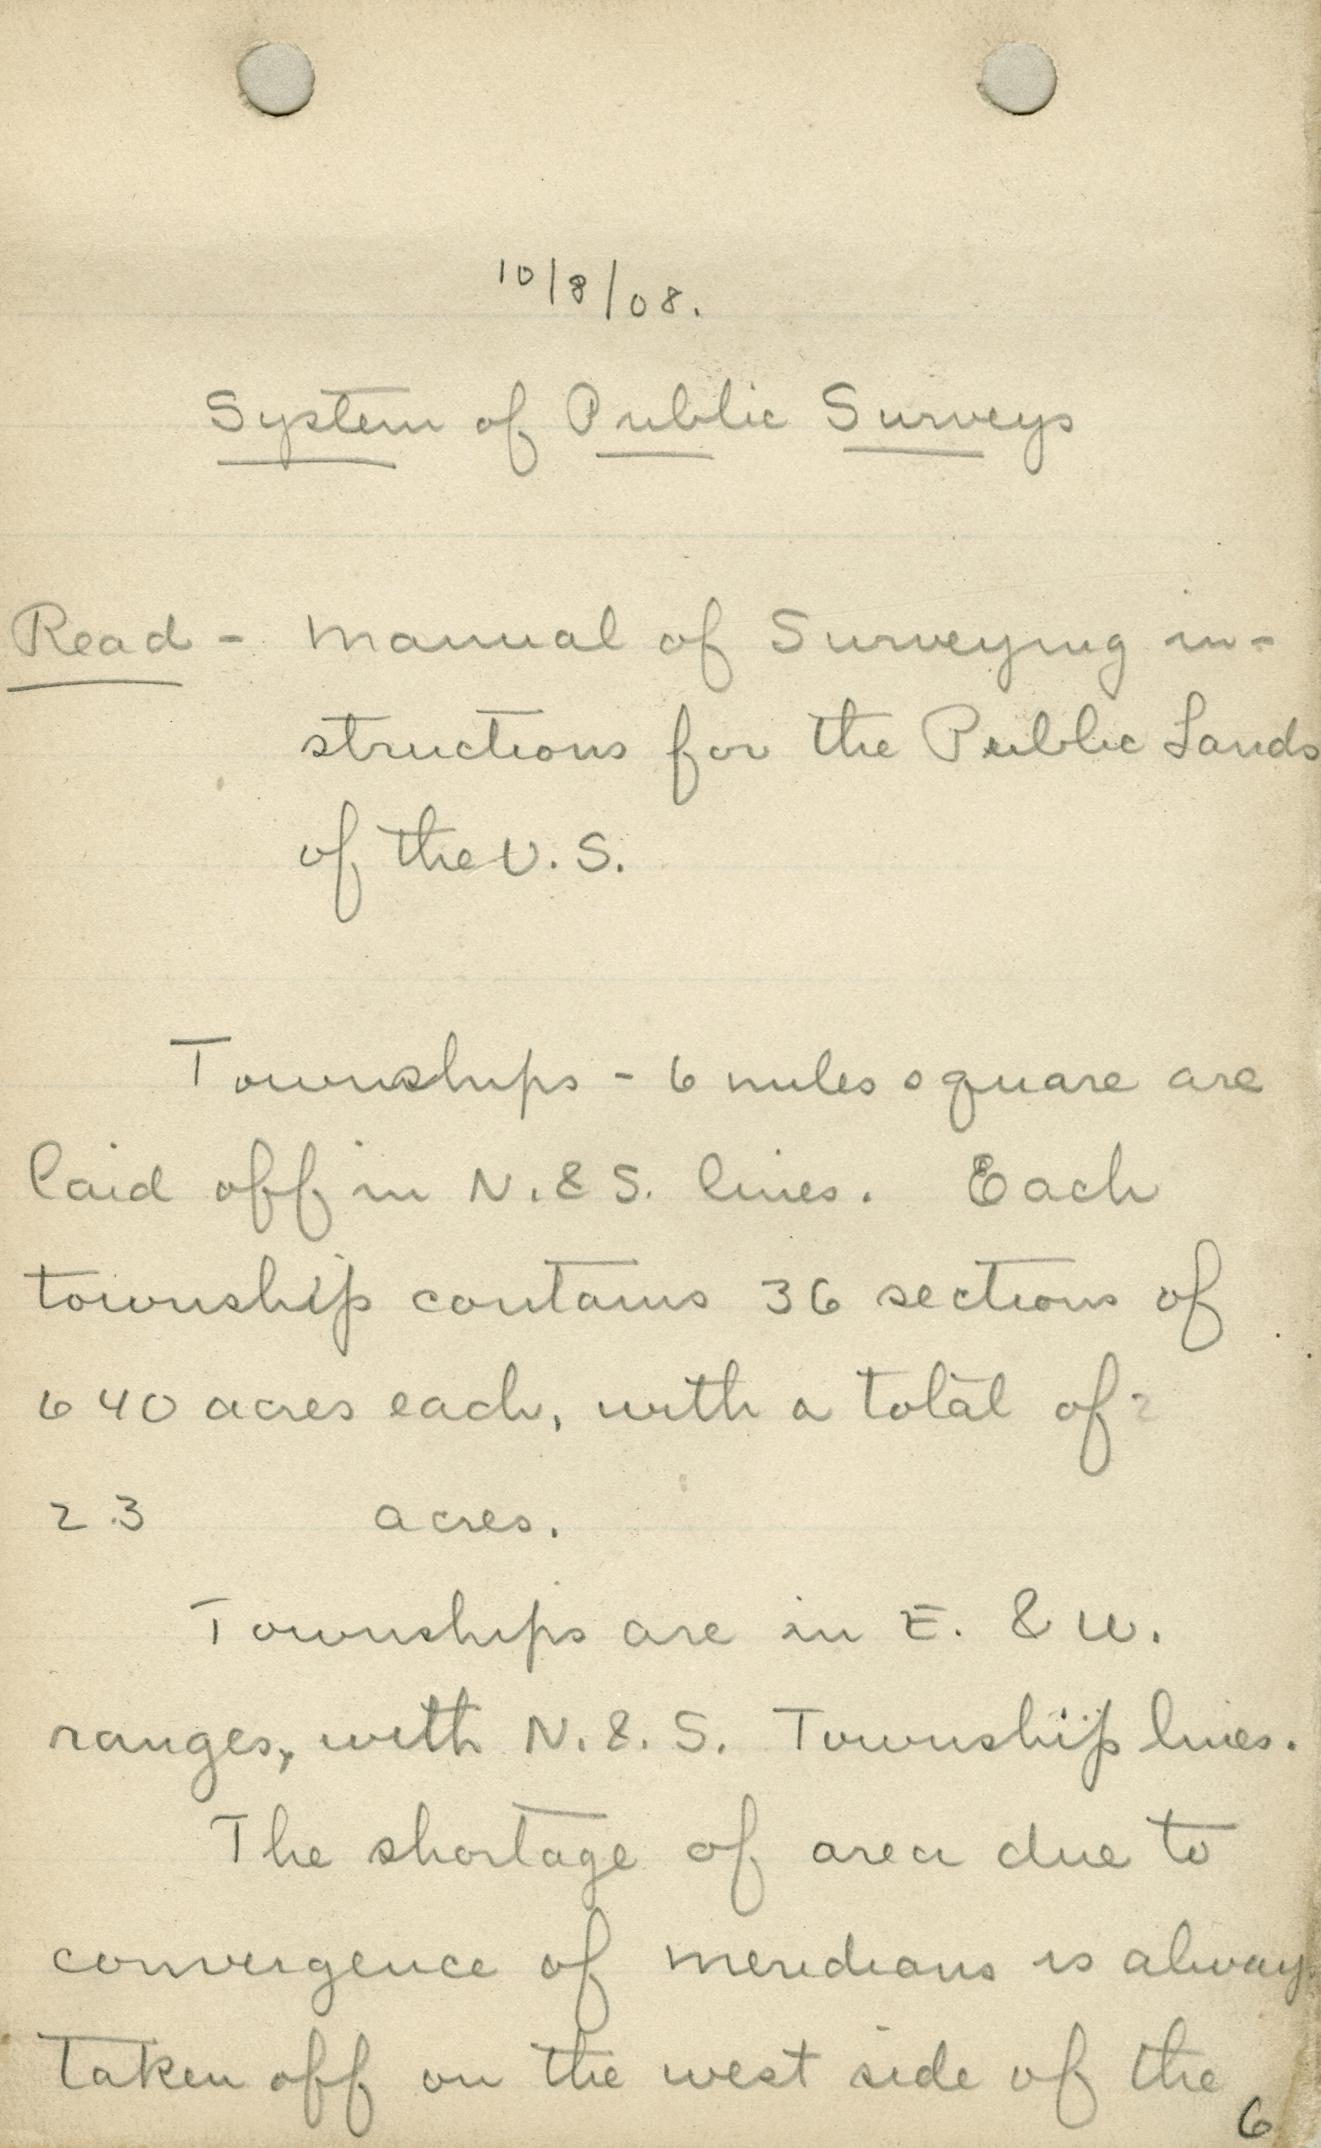 10/8/08.
System of Public Surveys
Read - Manual of Surveying in-
structions for the Public Lands
of the U.S.
Townships - 6 miles square are
laid off in N. & S. lines. Each
township contains 36 sections of
640 acres each, with a total of 2
23 acres.
Townships are in E. & W.
ranges, with N. & S. Township lines.
The shortage of area due to
convergence of meridians is always
taken off on the west side of the
6